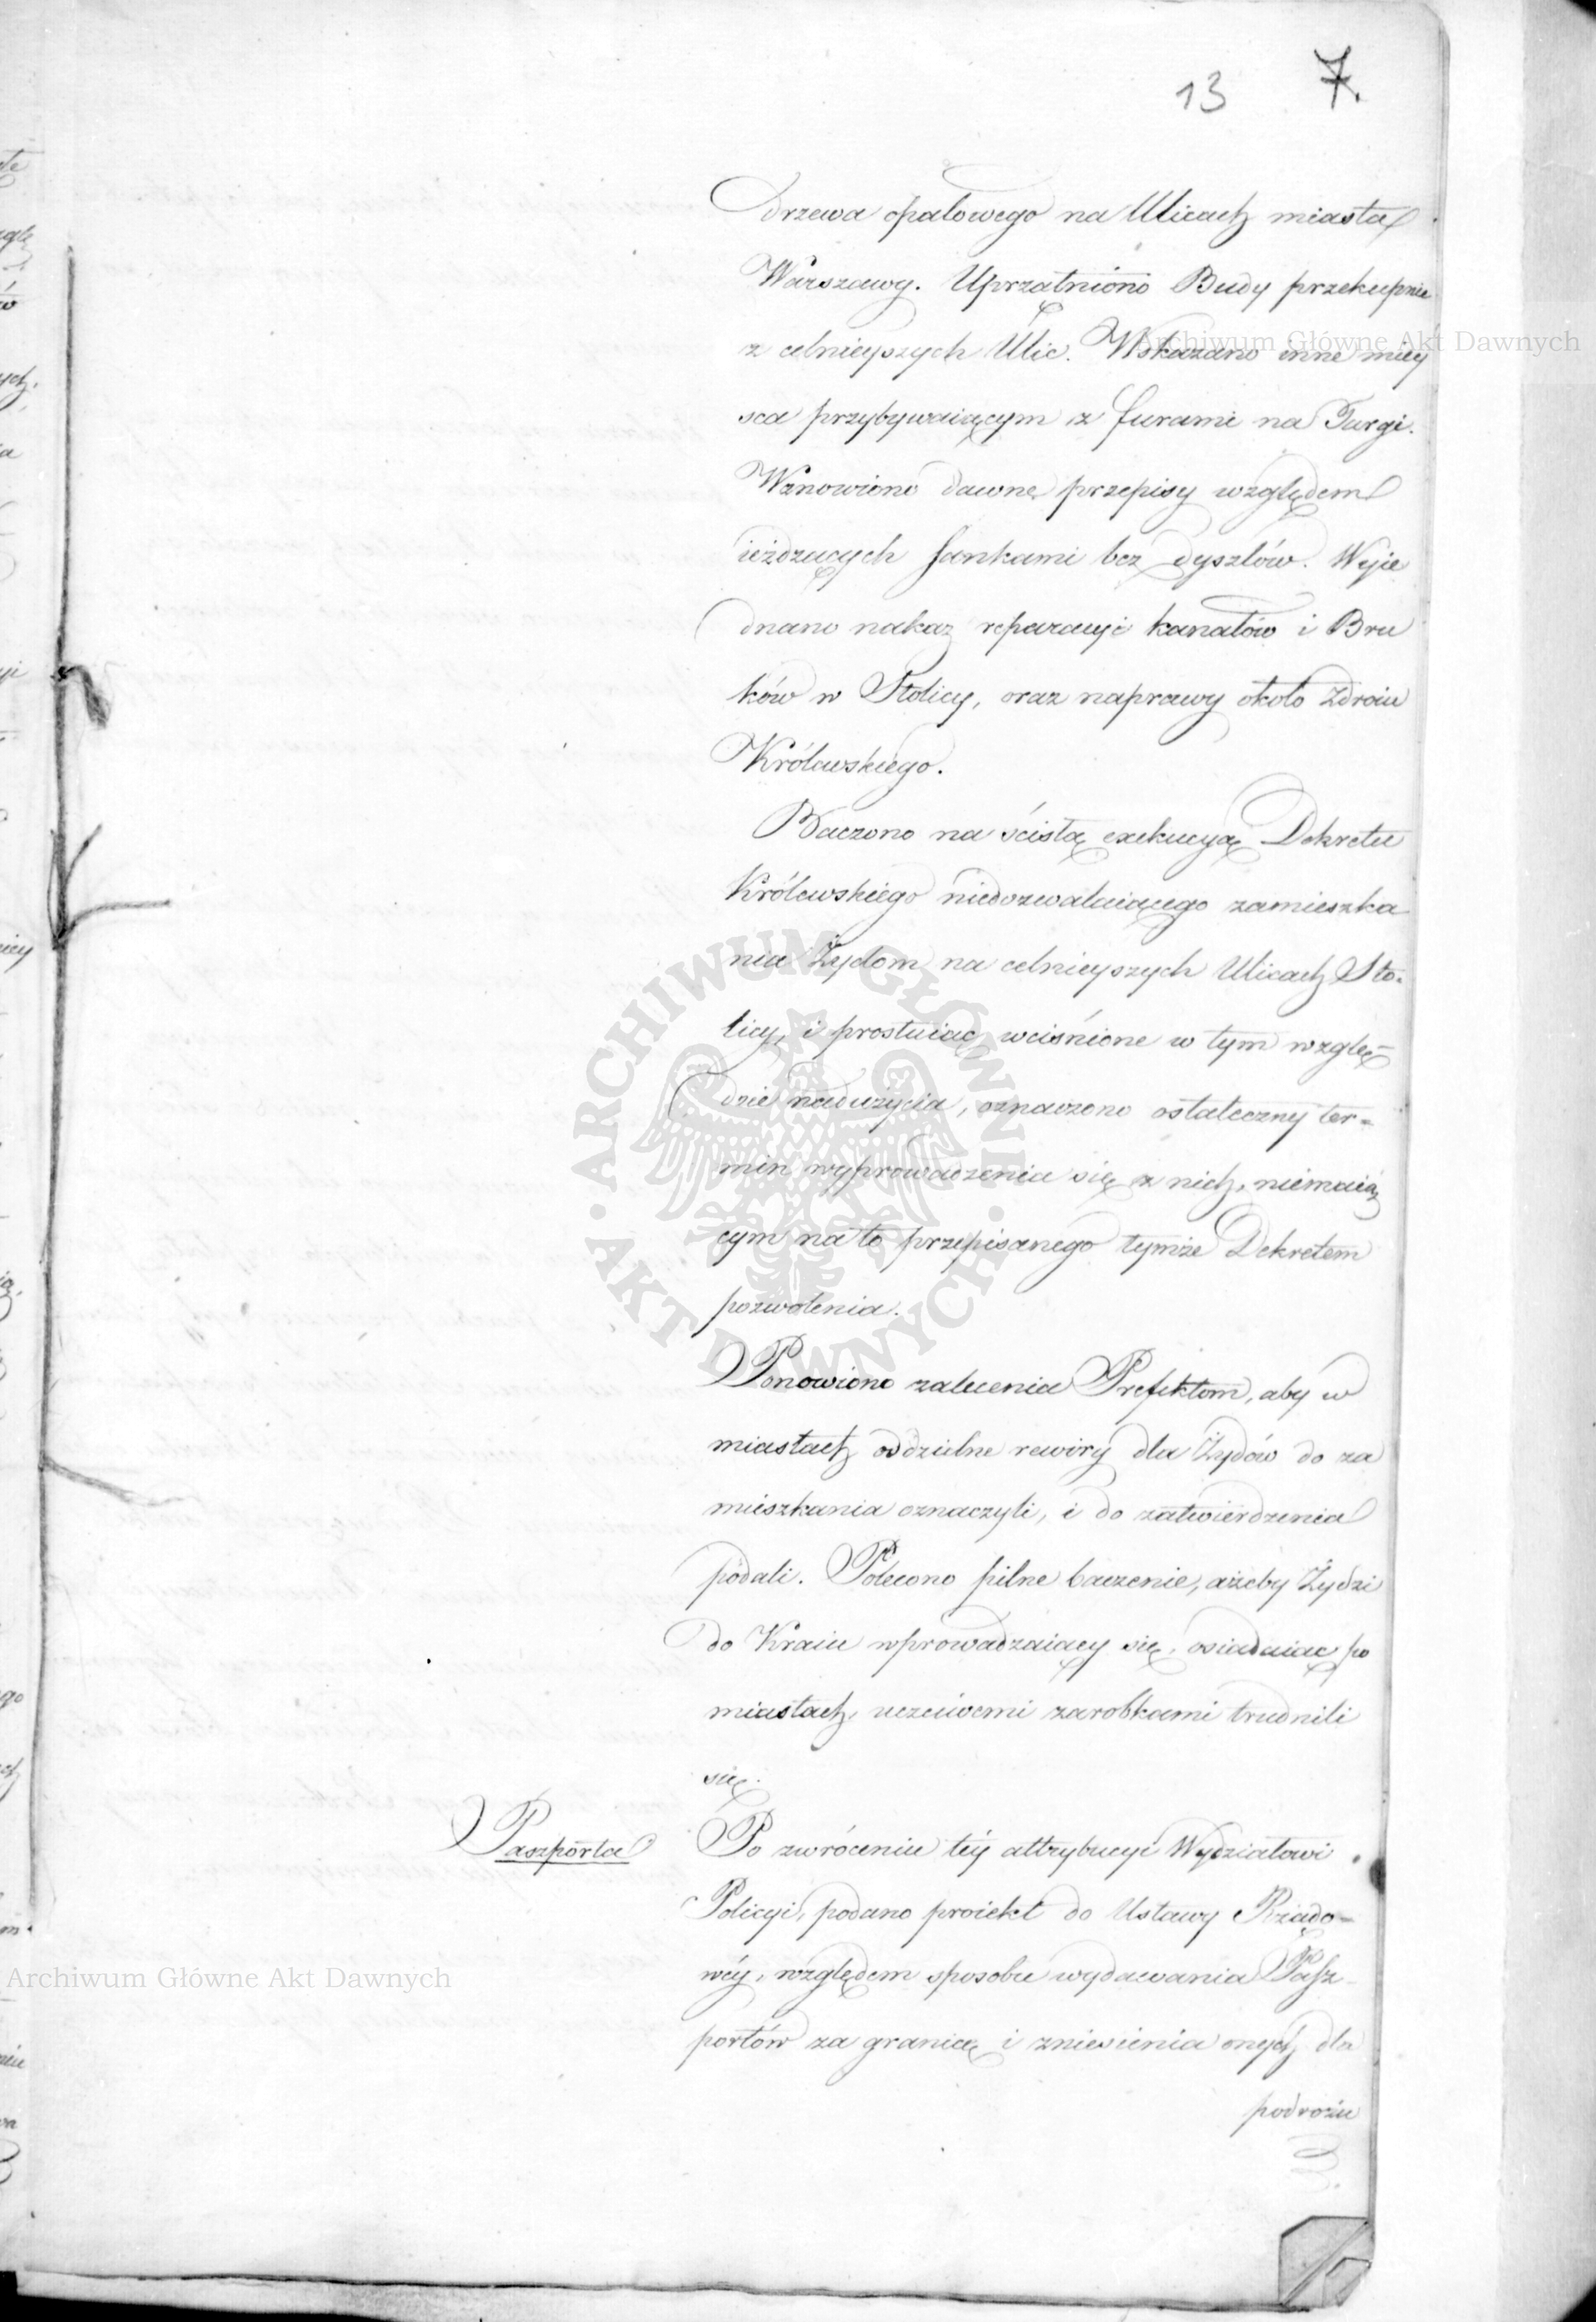 13 7.
drzewa opałowego na Ulicach miasta
Warszawy. Uprzątniono Budy przekupnie
z celnieyszych Ulic. Wskazano inne miey
sca przybywaiącym z furami na Targi.
Wznowiono dawne przepisy względem
ieżdżących sankami bez dyszlów. Wyie
dnano nakaz reparacyi kanałów i Bru
ków w Stolicy, oraz naprawy około Zdroiu
Królewskiego.
Baczono na ścisłą exekucyą Dekretu
Królewskiego niedozwalaiącego zamieszka
nia Żydom na celnieyszych Ulicach Sto-
licy, i prostuiąc wciśnione w tym wzglę-
dzie nadużycia, oznaczono ostateczny ter-
min wyprowadzenia się z nich, niemaią
cym na to przepisanego tymże Dekretem
pozwolenia.
Ponowiono zalecenia Prefektom, aby w
miastach oddzielne rewiry dla Żydów do za
mieszkania oznaczyli, i do zatwierdzenia
podali. Polecono pilne baczenie, ażeby Żydzi
do Kraiu wprowadzaiący się, osiadaiąc po
miastach, uczciwemi zarobkami trudnili
się.
Paszporta
Po zwróceniu téy attrybucyi Wydziałowi
Policyi, podano proiekt do Ustawy Rządo-
wéy, względem sposobu wydawania Pasz-
portów za granicę i zniesienia onych dla
podrożu
Archiwum Główne Akt Dawnych
Archiwum Główne Akt Dawnych
ARCHIWUM GŁÓWNE · AKT DAWNYCH ·